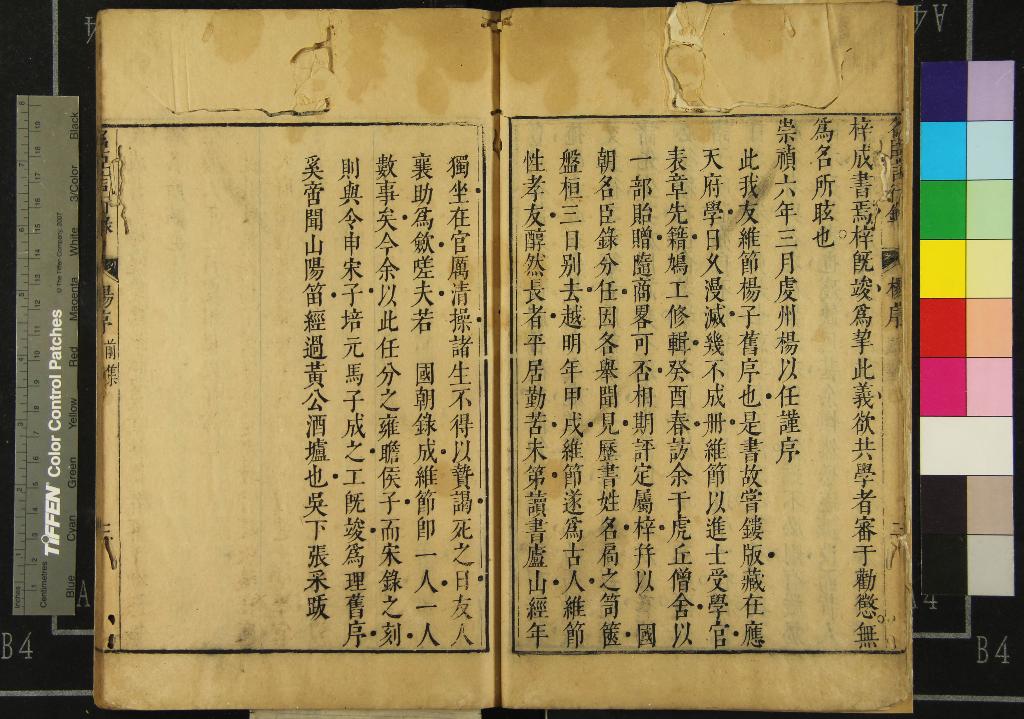 梓成書焉梓旣竣爲挈此義欲共學者審于勸懲無
爲名所眩也
崇禎六年三月虔州楊以任謹序
此我友維節楊子舊序也是書故嘗鏤版藏在應
天府學日久漫滅幾不成册維節以進士受學官
表章先籍鳩工修輯癸酉春訪余于虎丘僧舍以
一部貽贈隨商畧可否相期評定屬梓幷以　國
朝名臣錄分任因各舉聞見歷書姓名扃之笥篋
盤桓三日别去越明年甲戌維節遂爲古人維節
性孝友醇然長者平居勤苦未第讀書廬山經年
獨坐在官厲清操諸生不得以贄謁死之日友人
襄助爲歛嗟夫若　國朝錄成維節卽一人一人
數事矣今余以此任分之雍瞻侯子而宋錄之刻
則與令申宋子培元馬子成之工旣竣爲理舊序
奚啻聞山陽笛經過黃公酒壚也吳下張采跋
楊序
前集
TIFFEN Color Control Patches
© The Tiffen Company, 2007
Inches
Centimetres
Blue
Cyan
Green
Yellow
Red
Magenta
White
3/Color
Black
B4
B4
A4
A4